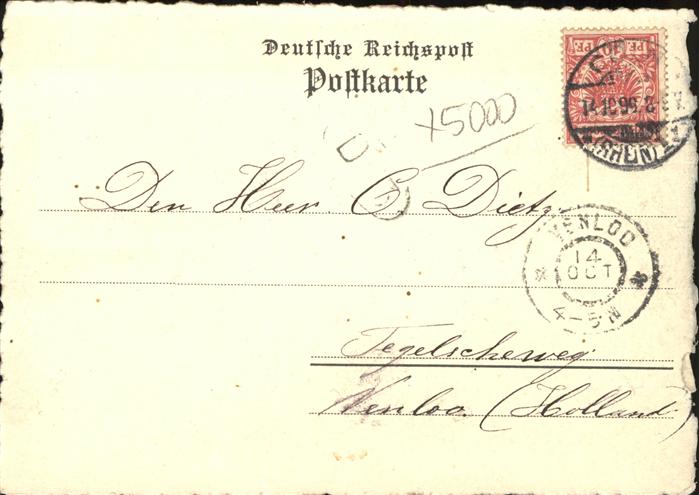 Deutsche Reichspost
Postkarte
x5000
Den Heer C Dietz
VENLOO
14
OCT
4-5N
Tegelscheweg
Venloo (Holland)